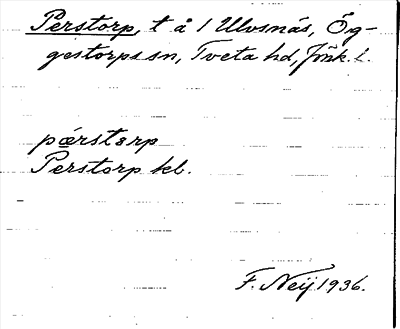 Perstorp, t å 1 Ulvsnäs, Ög-
gestorps sn, Tveta hd, Jönk. l.
pæ̨rstɛrp
Perstorp kb.
F. Neij 1936.